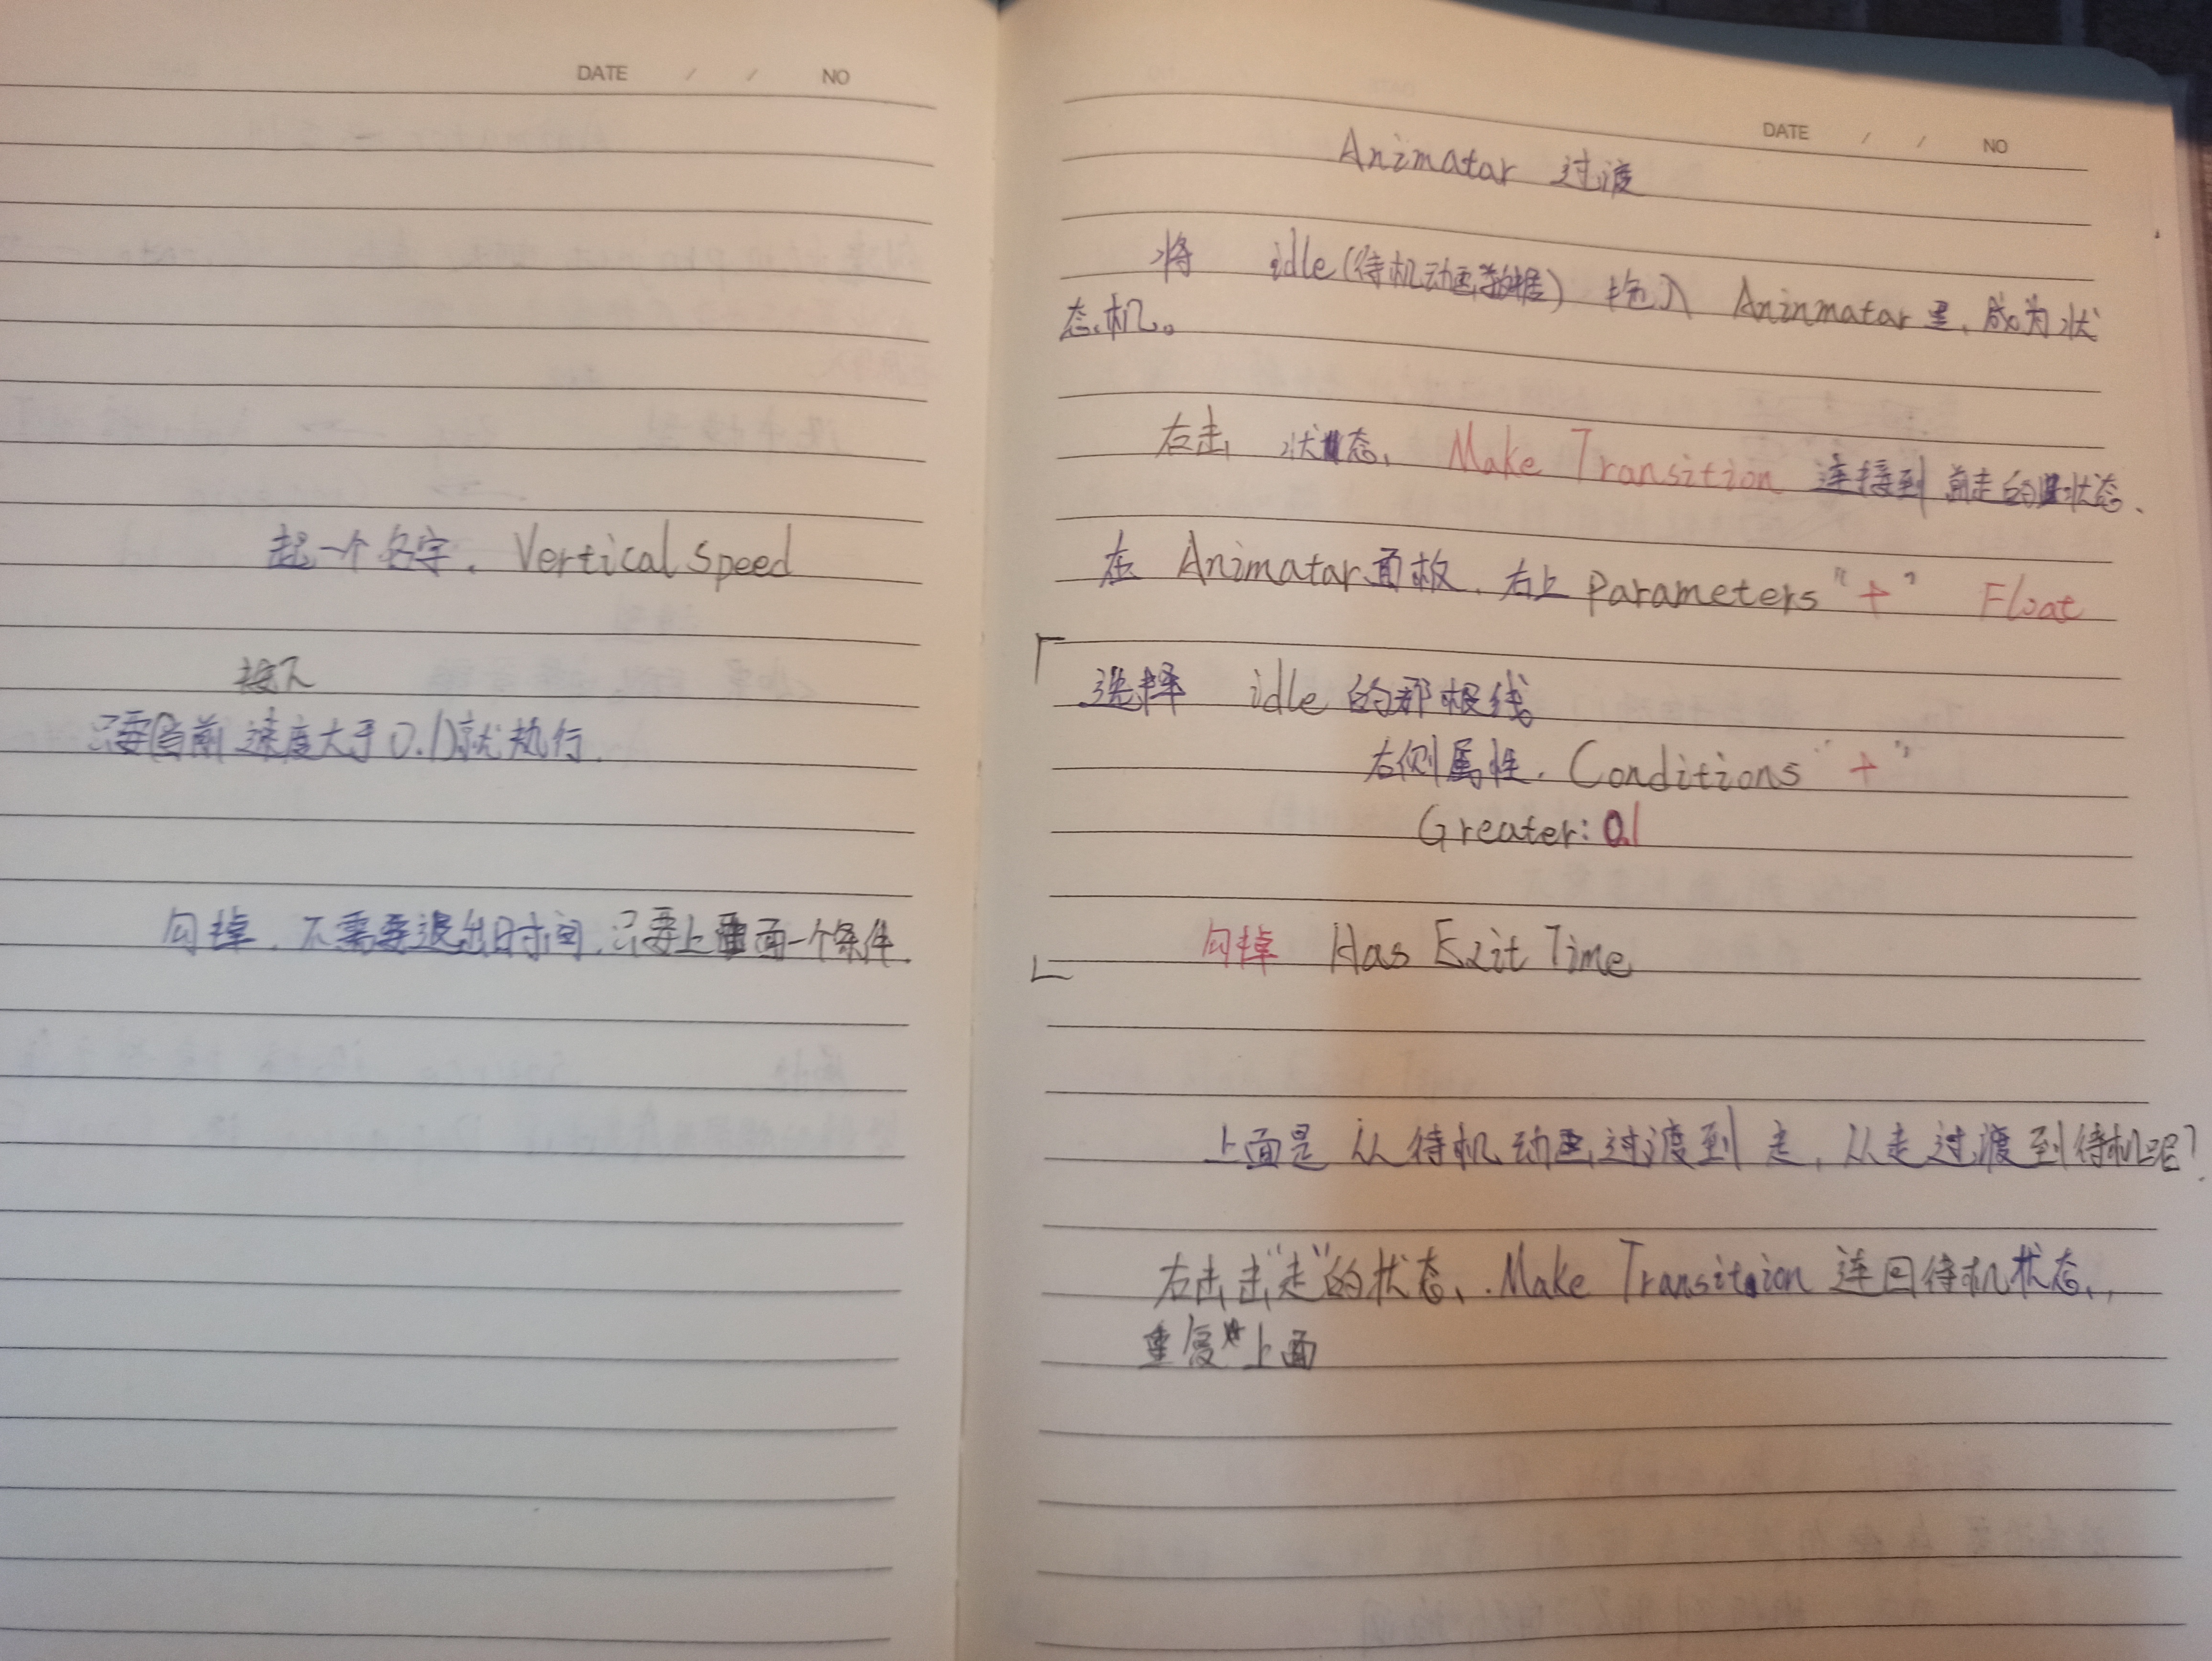 DATE / / NO
起一个名字. Vertical Speed
按下
只要(当前速度大于0.1)就执行.
勾掉. 不需要退出时间. 只要上面一个条件.
DATE / / NO
Animatar 过渡
将 idle(待机动画数据) 拖入 Aninmatar里, 成为状
态机。
右击 状态、 Make Transition 连接到 前走的状态、
在 Animatar面板. 右上 Parameters "+" Float
「选择 idle 的那根线
右侧属性. Conditions "+"
Greater: 0.1
勾掉 Has Exit Time
上面是 从待机动画过渡到 走, 从走过渡到待机呢?
右击击"走"的状态、. Make Transition 连回待机状态、,
重复 上面